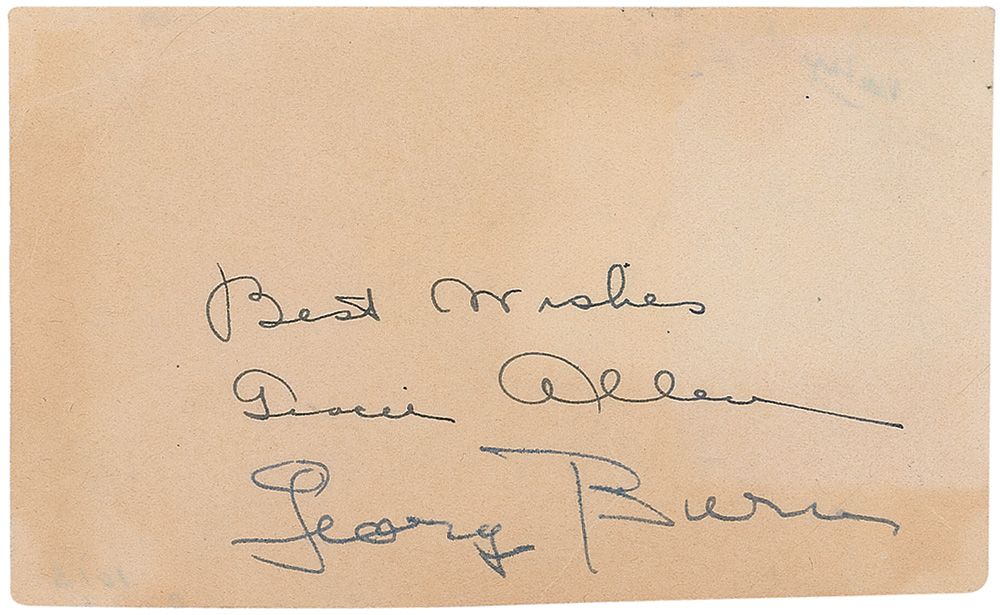 Best Wishes
Gracie Allen
George Burns